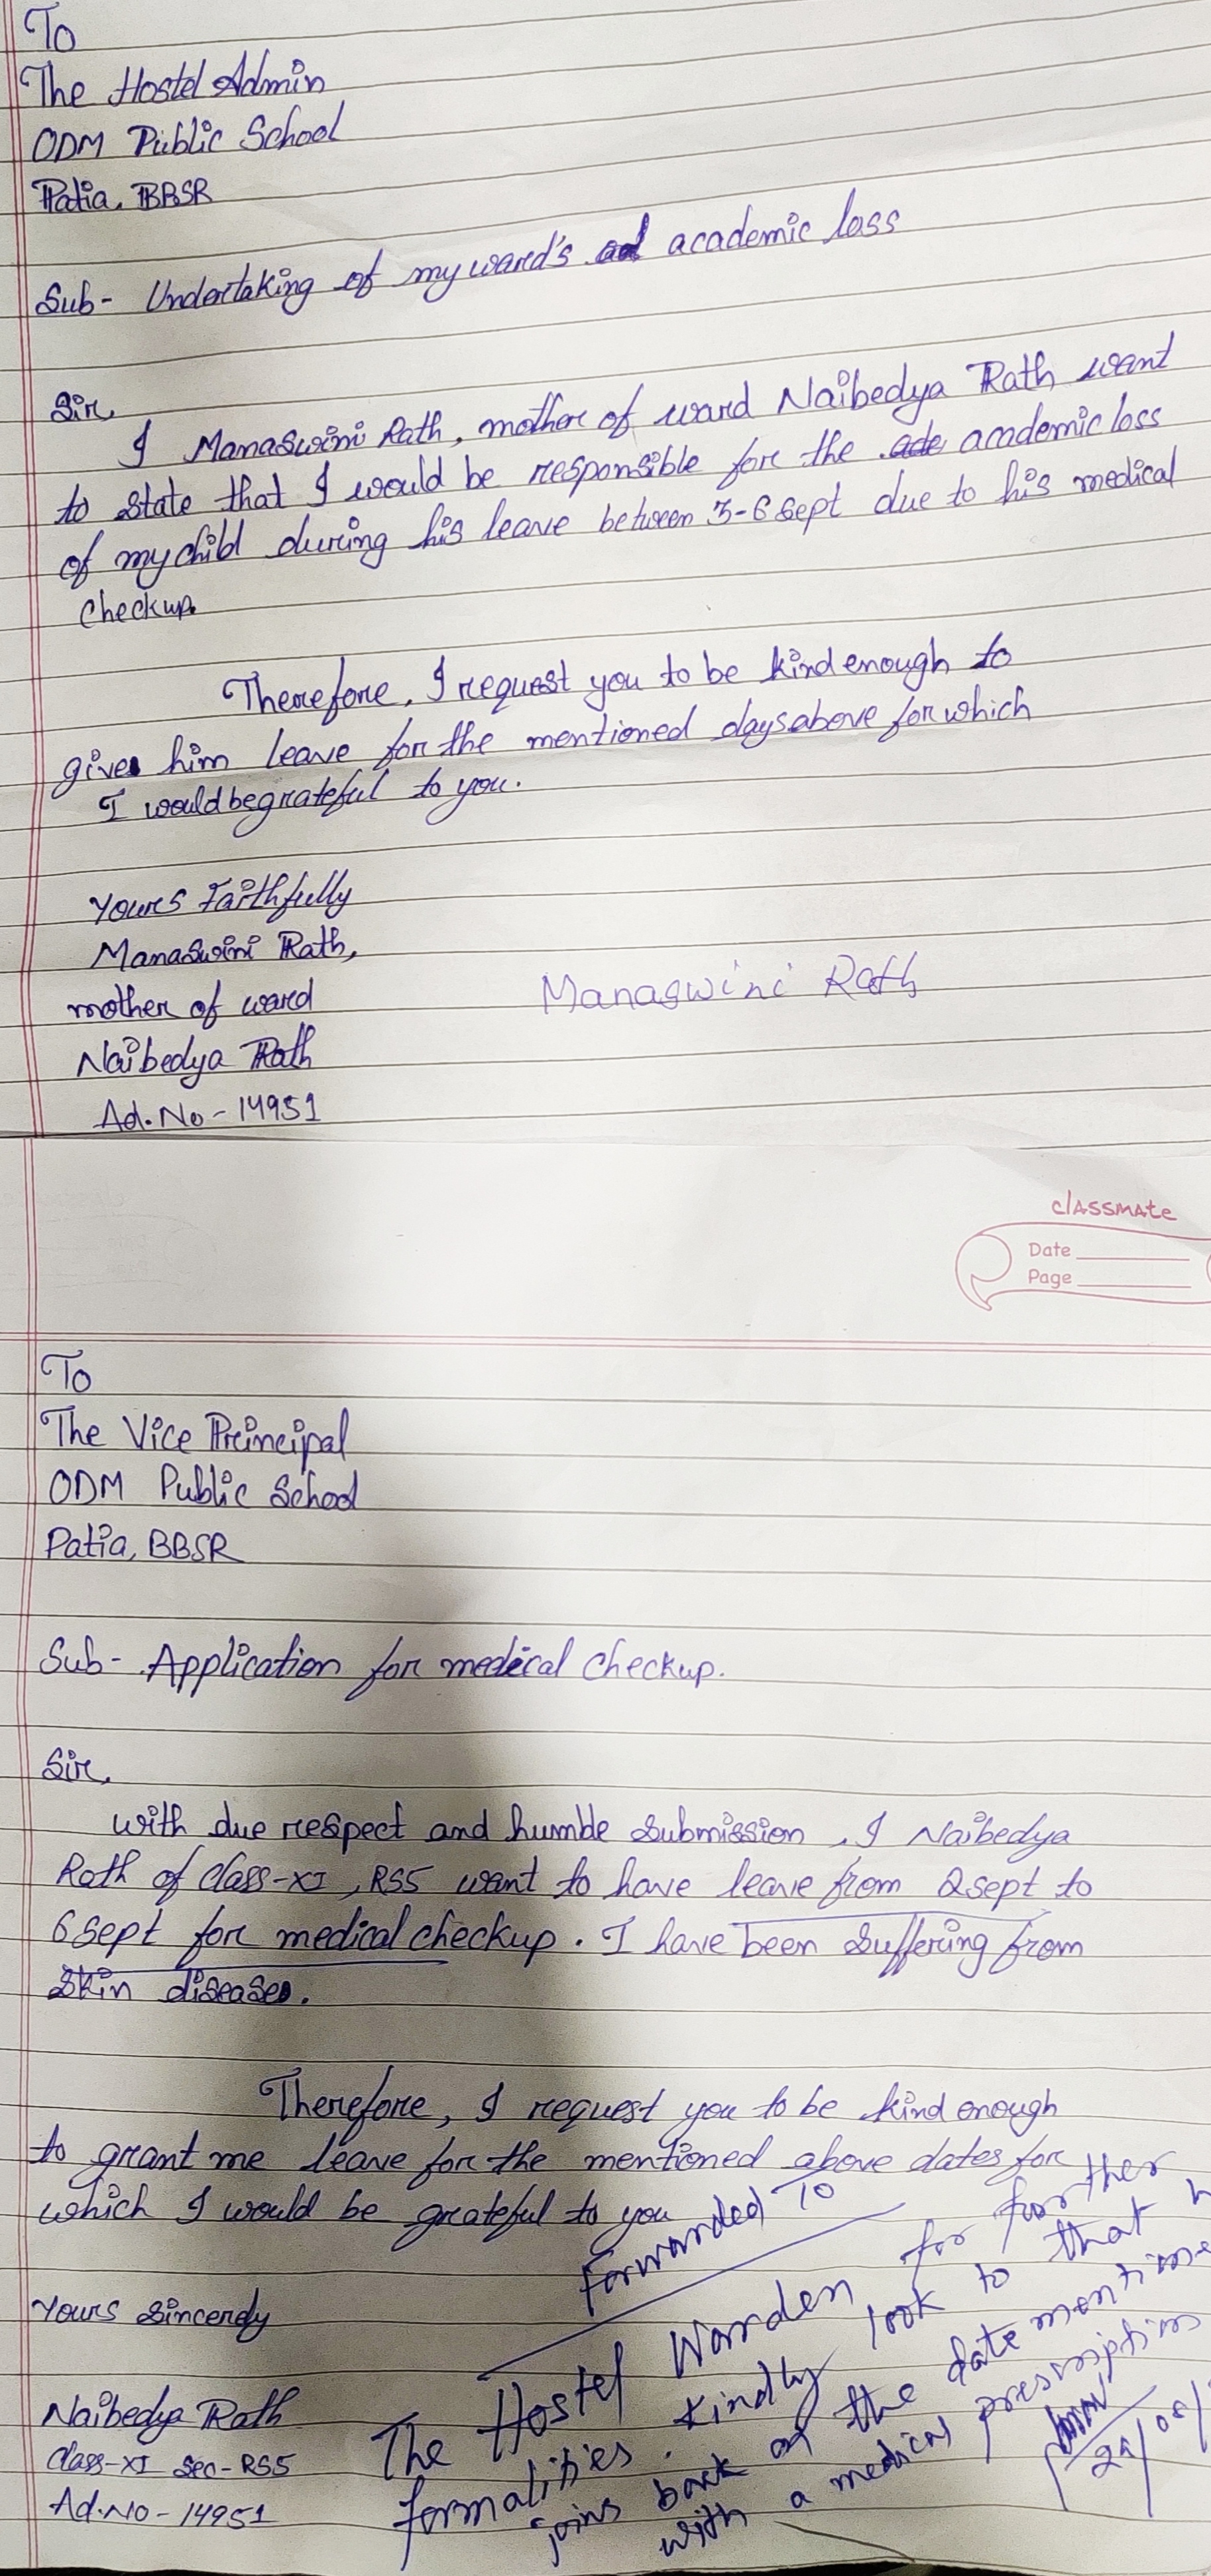 To
The Hostel Admin
ODM Public School
Patia, BBSR
Sub- Undertaking of my ward's academic loss
Sir,
I Manaswini Rath, mother of ward Naibedya Rath want
to state that I would be responsible for the academic loss
of my child during his leave between 3-6 Sept due to his medical
checkup.
Therefore, I request you to be kind enough to
give him leave for the mentioned days above for which
I would be grateful to you.
Yours Faithfully
Manaswini Rath,
mother of ward
Naibedya Rath
Ad.No-14951
Manaswini Rath
classmate
Date
Page
To
The Vice Principal
ODM Public School
Patia, BBSR
Sub- Application for medical checkup.
Sir,
with due respect and humble submission, I Naibedya
Rath of class-XI, RS5 want to have leave from 2sept to
6 sept for medical checkup. I have been suffering from
skin diseases.
Therefore, I request you to be kind enough
to grant me leave for the mentioned above dates for
which I would be grateful to you
Yours Sincerely
Naibedya Rath
Class-XI Sec-RS5
Ad.No-14951
Forwarded To
The Hostel Warden for further
formalities. Kindly look to that
joins back on the date mentione
with a medical prescription